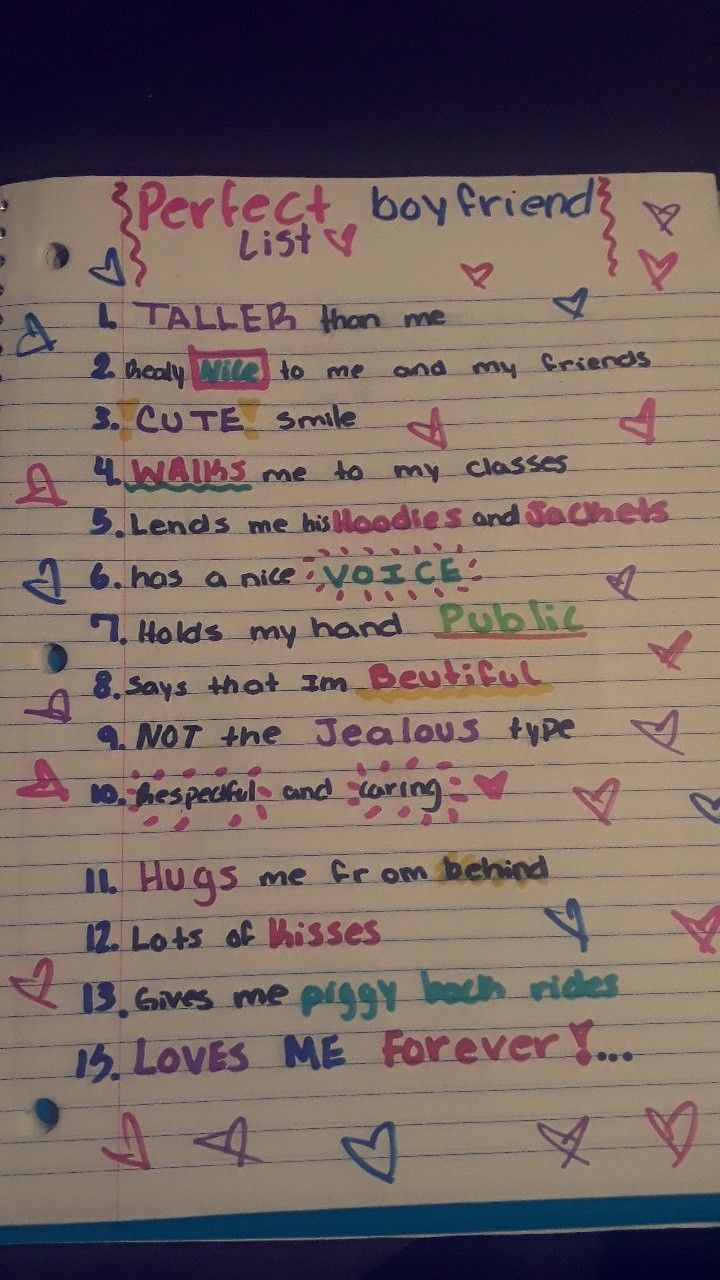 Perfect boyfriend
List
1. TALLER than me
2. Really Nice to me and my friends
3. !CUTE! smile
4. WAlks me to my classes
5. Lends me his Hoodies and Jackets
6. has a nice VOICE
7. Holds my hand Public
8. Says that Im Beutiful
9. NOT the Jealous type
10. Respectful and caring
11. Hugs me from behind
12. Lots of kisses
13. Gives me piggy back rides
15. LOVES ME Forever!...